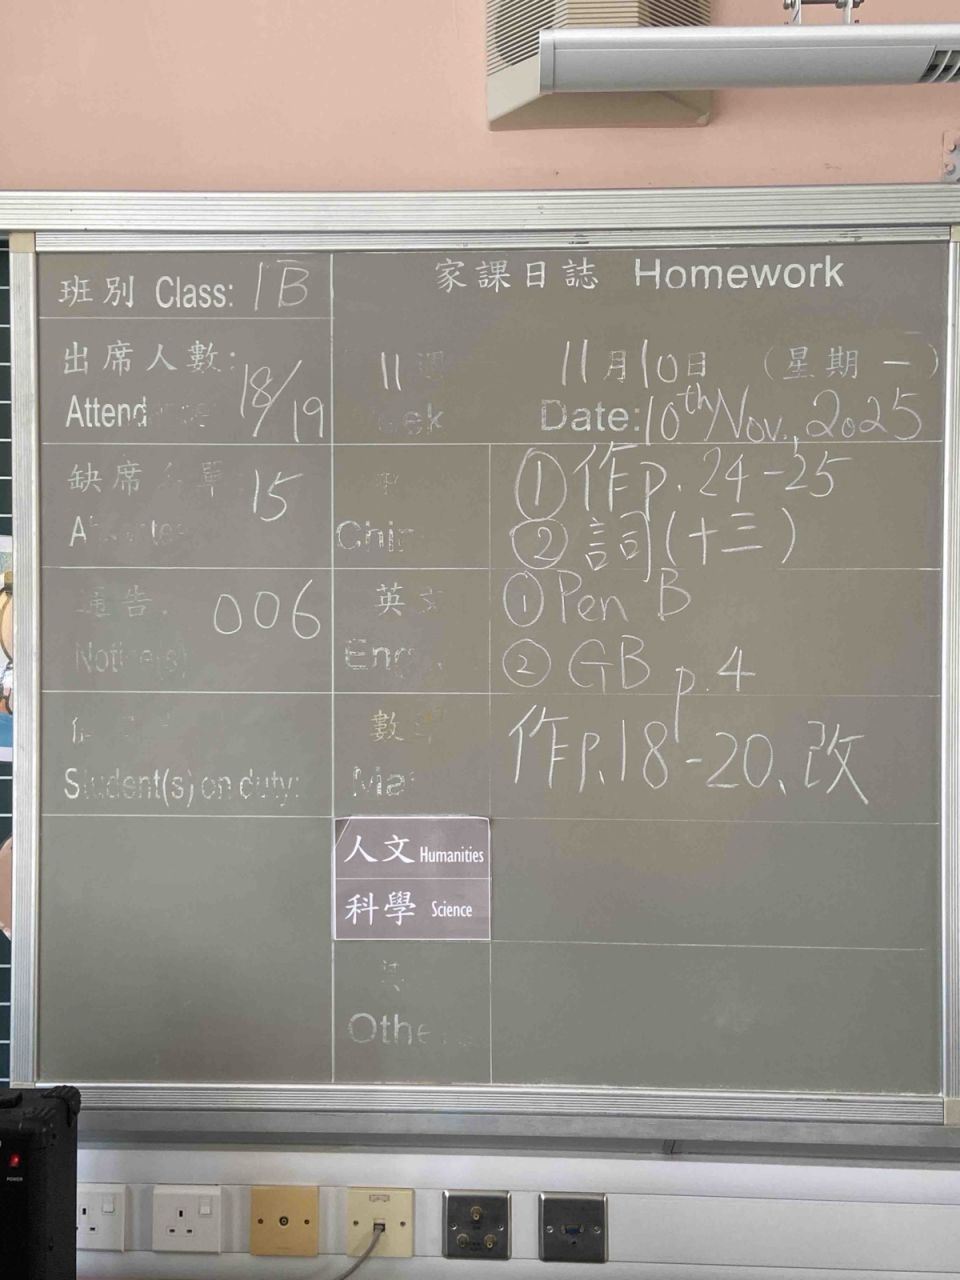 班別 Class: 1B
家課日誌 Homework
出席人數:
Attend 18/19
11週
11月10日 (星期一)
Date: 10th Nov., 2025
缺席名單 15
通告. 006
Notice(s)
Student(s) on duty:
Chin
① 作p. 24-25
② 詞(十三)
英文
Eng
① Pen B
② GB p.4
數學
Ma
作p.18-20、改
人文 Humanities
科學 Science
Othe
POWER